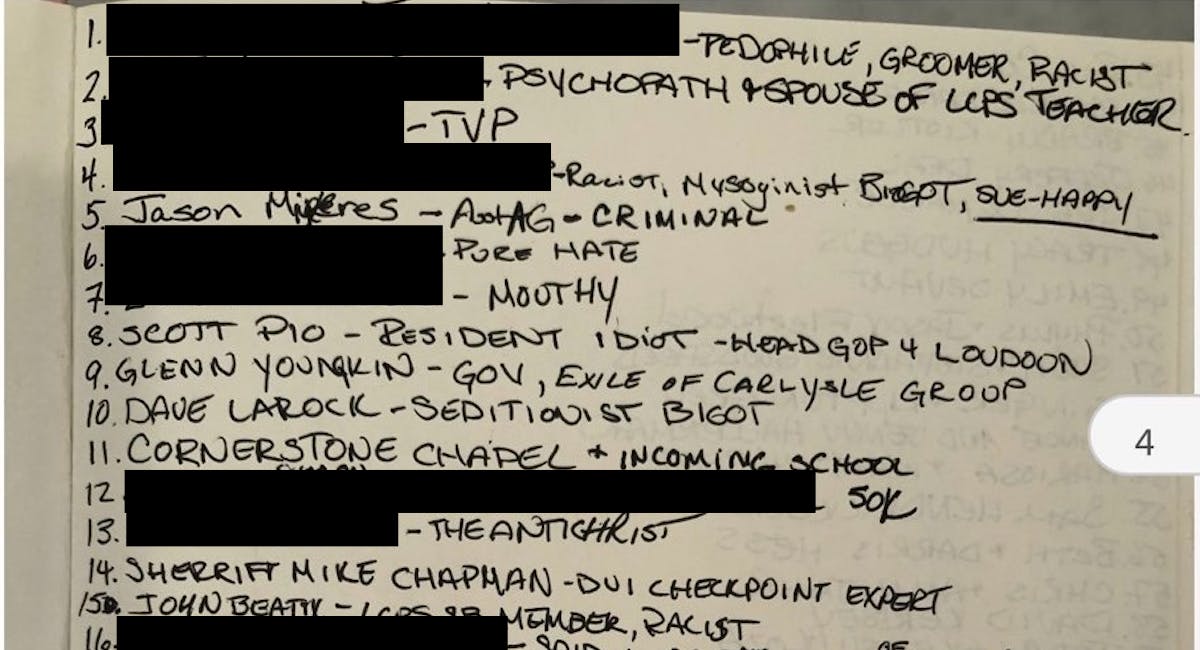 1. -PEDOPHILE, GROOMER, RACIST
2. - PSYCHOPATH + SPOUSE OF LCPS TEACHER
3 -TVP
4. -Racist, Mysoginist BIGOT, SUE-HAPPY
5. Jason - Asst AG - CRIMINAL
6. -PURE HATE
7. - MOUTHY
8. SCOTT PIO - RESIDENT IDIOT -HEAD GOP 4 LOUDOON
9. GLENN YOUNGKIN - GOV, EXILE OF CARLYSLE GROUP
10. DAVE LAROCK - SEDITIONIST BIGOT
11. CORNERSTONE CHAPEL + INCOMING SCHOOL
12 50K
13. - THE ANTICHRIST
14. SHERRIFF MIKE CHAPMAN -DUI CHECKPOINT EXPERT
15. JOHN BEATTY - LCPS SB MEMBER, RACIST
16.
4